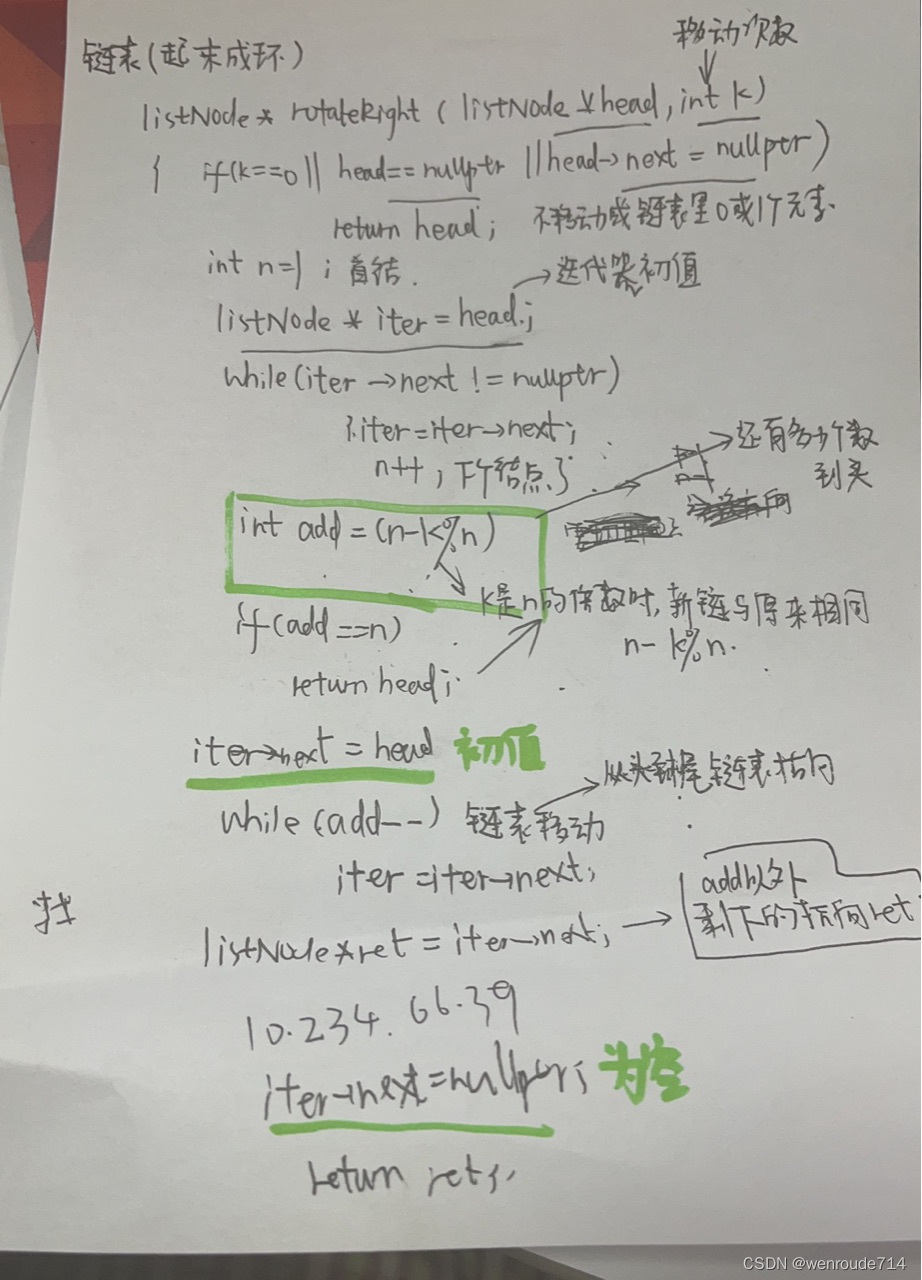 链表(起来成环)
移动次数
listNode* rotateRight (listNode *head, int k)
{ if(k==0 || head==nullptr || head->next = nullptr)
return head; 不移动或链表里0或1个元素.
int n=1; 首结.
迭代器初值
listNode * iter = head;
while(iter->next != nullptr)
{iter=iter->next;
n++, 下个结点了
还有多少个数
到头
int add = (n-k%n)
k是n的倍数时,新链与原来相同
n-k%n.
if(add==n)
return head;
iter->next = head 初值
从头到尾与链表指向
while(add--) 链表移动
iter=iter->next;
找
listNode*ret = iter->next;
add以外
剩下的指向ret
10.234.66.39
iter->next=nullptr; 为空
return ret;
CSDN @wenroude714